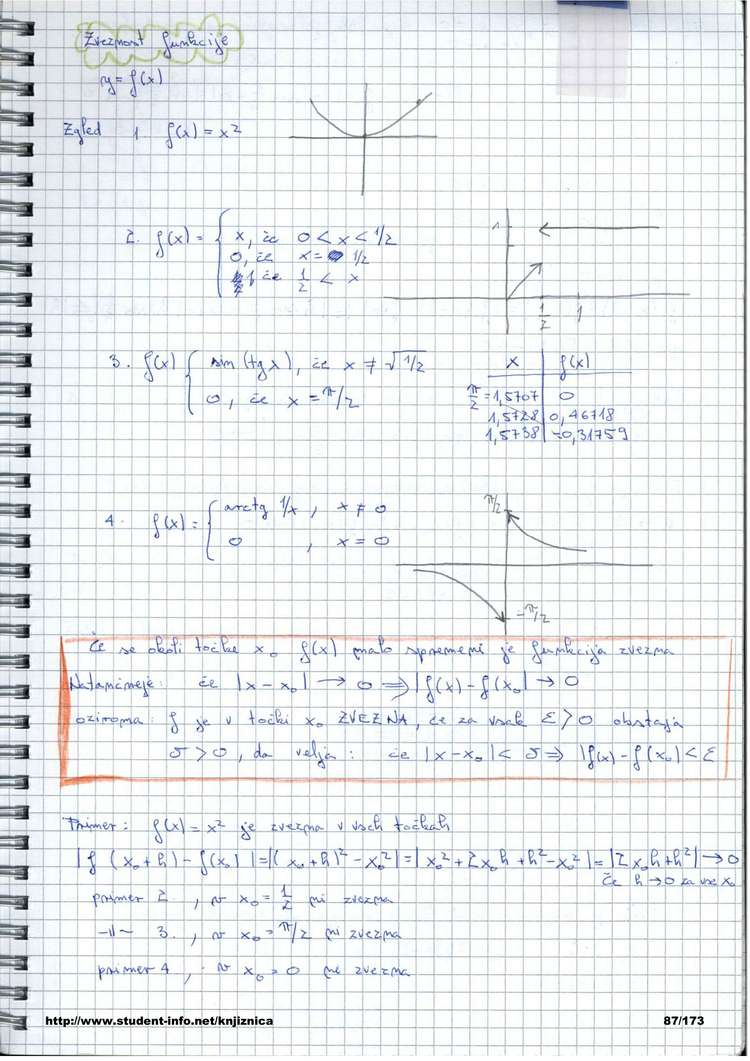 Zveznost funkcije
y = f(x)
Zgled 1. f(x) = x²
2. f(x) = { x, če 0 < x < 1/2
0, če x = 1/2
1 če 1/2 < x
1
1/2 1
3. f(x) { sin (tg x), če x ≠ √1/2
0, če x = π/2
x | f(x)
π/2 = 1,5707 | 0
1,5728 | 0,46718
1,5738 | -0,31759
4. f(x) = { arctg 1/x, x ≠ 0
0, x = 0
π/2
-π/2
Če se okoli točke x₀ f(x) malo spremeni je funkcija zvezna
Natančneje: če |x - x₀| → 0 ⇒ |f(x) - f(x₀)| → 0
oziroma: f je v točki x₀ ZVEZNA, če za vsak ε > 0 obstaja
δ > 0, da velja: če |x - x₀| < δ ⇒ |f(x) - f(x₀)| < ε
Primer: f(x) = x² je zvezna v vseh točkah
|f(x₀ + h) - f(x₀)| = |(x₀ + h)² - x₀²| = |x₀² + 2x₀h + h² - x₀²| = |2x₀h + h²| → 0
Če h → 0 za vse x₀
primer 2., v x₀ = 1/2 ni zvezna
-||- 3., v x₀ = π/2 ni zvezna
primer 4, v x₀ = 0 ni zvezna
http://www.student-info.net/knjiznica 87/173